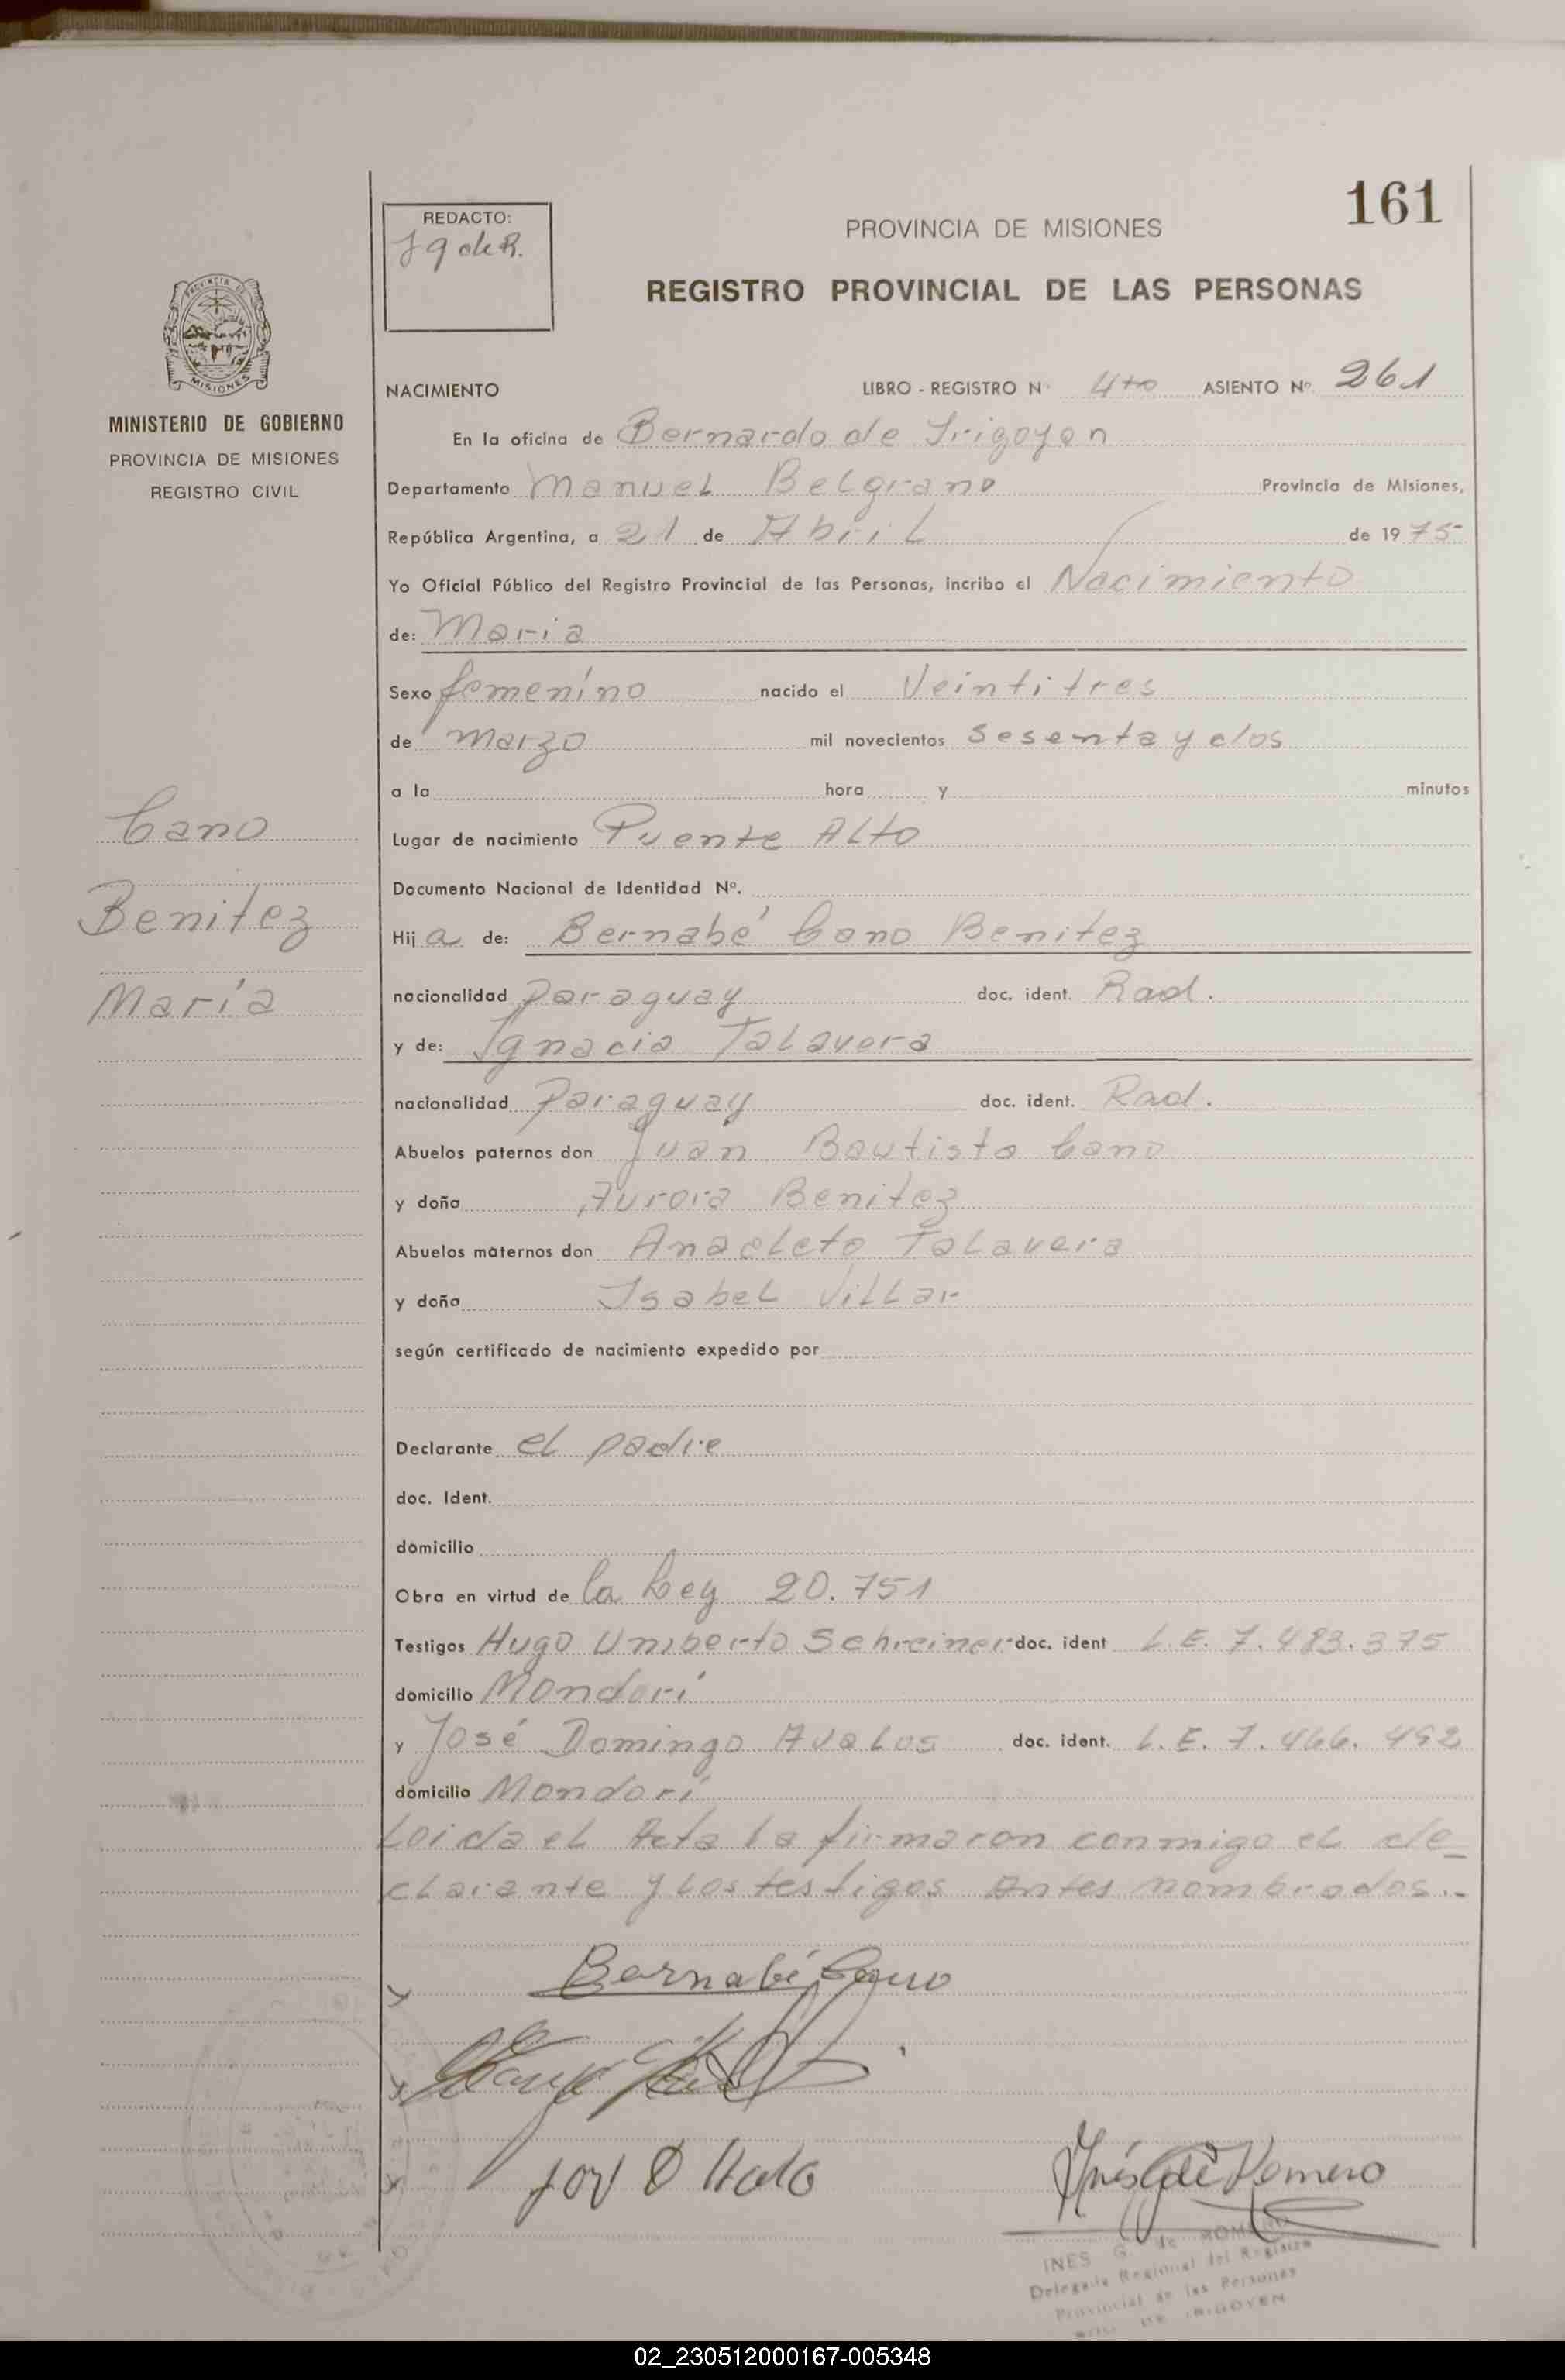 161
REDACTO:
PROVINCIA DE MISIONES
REGISTRO PROVINCIAL DE LAS PERSONAS
PROVINCIA DE
MISIONES
MINISTERIO DE GOBIERNO
PROVINCIA DE MISIONES
REGISTRO CIVIL
NACIMIENTO LIBRO - REGISTRO Nº 4to ASIENTO Nº 261
En la oficina de Bernardo de Irigoyen
Departamento Manuel Belgrano Provincia de Misiones,
República Argentina, a 21 de Abril de 1975
Yo Oficial Público del Registro Provincial de las Personas, incribo el Nacimiento
de: Maria
Sexo femenino nacido el Veintitres
de marzo mil novecientos sesenta y dos
a la hora y minutos
Lugar de nacimiento Puente Alto
Documento Nacional de Identidad Nº.
Cano
Benitez
María
Hija de: Bernabé Cano Benitez
nacionalidad Paraguay doc. ident. Rad.
y de: Ignacia Talavera
nacionalidad Paraguay doc. ident. Rad.
Abuelos paternos don Juan Bautista Cano
y doña Aurora Benitez
Abuelos maternos don Anacleto Talavera
y doña Isabel Villar
según certificado de nacimiento expedido por
Declarante el padre
doc. Ident.
domicilio
Obra en virtud de la Ley 20.751
Testigos Hugo Umberto Schreiner doc. ident L.E. 7.483.375
domicilio Mondorí
y José Domingo Avalos doc. ident. L.E. 7.466.492
domicilio Mondorí
Loida el Acta la firmaron conmigo el de_
clarante y los testigos antes nombrados.-
Bernabé Cano
Inés G de Romero
INES G. de ROMERO
Delegada Regional del Registro
Provincial de las Personas
DE IRIGOYEN
02_230512000167-005348